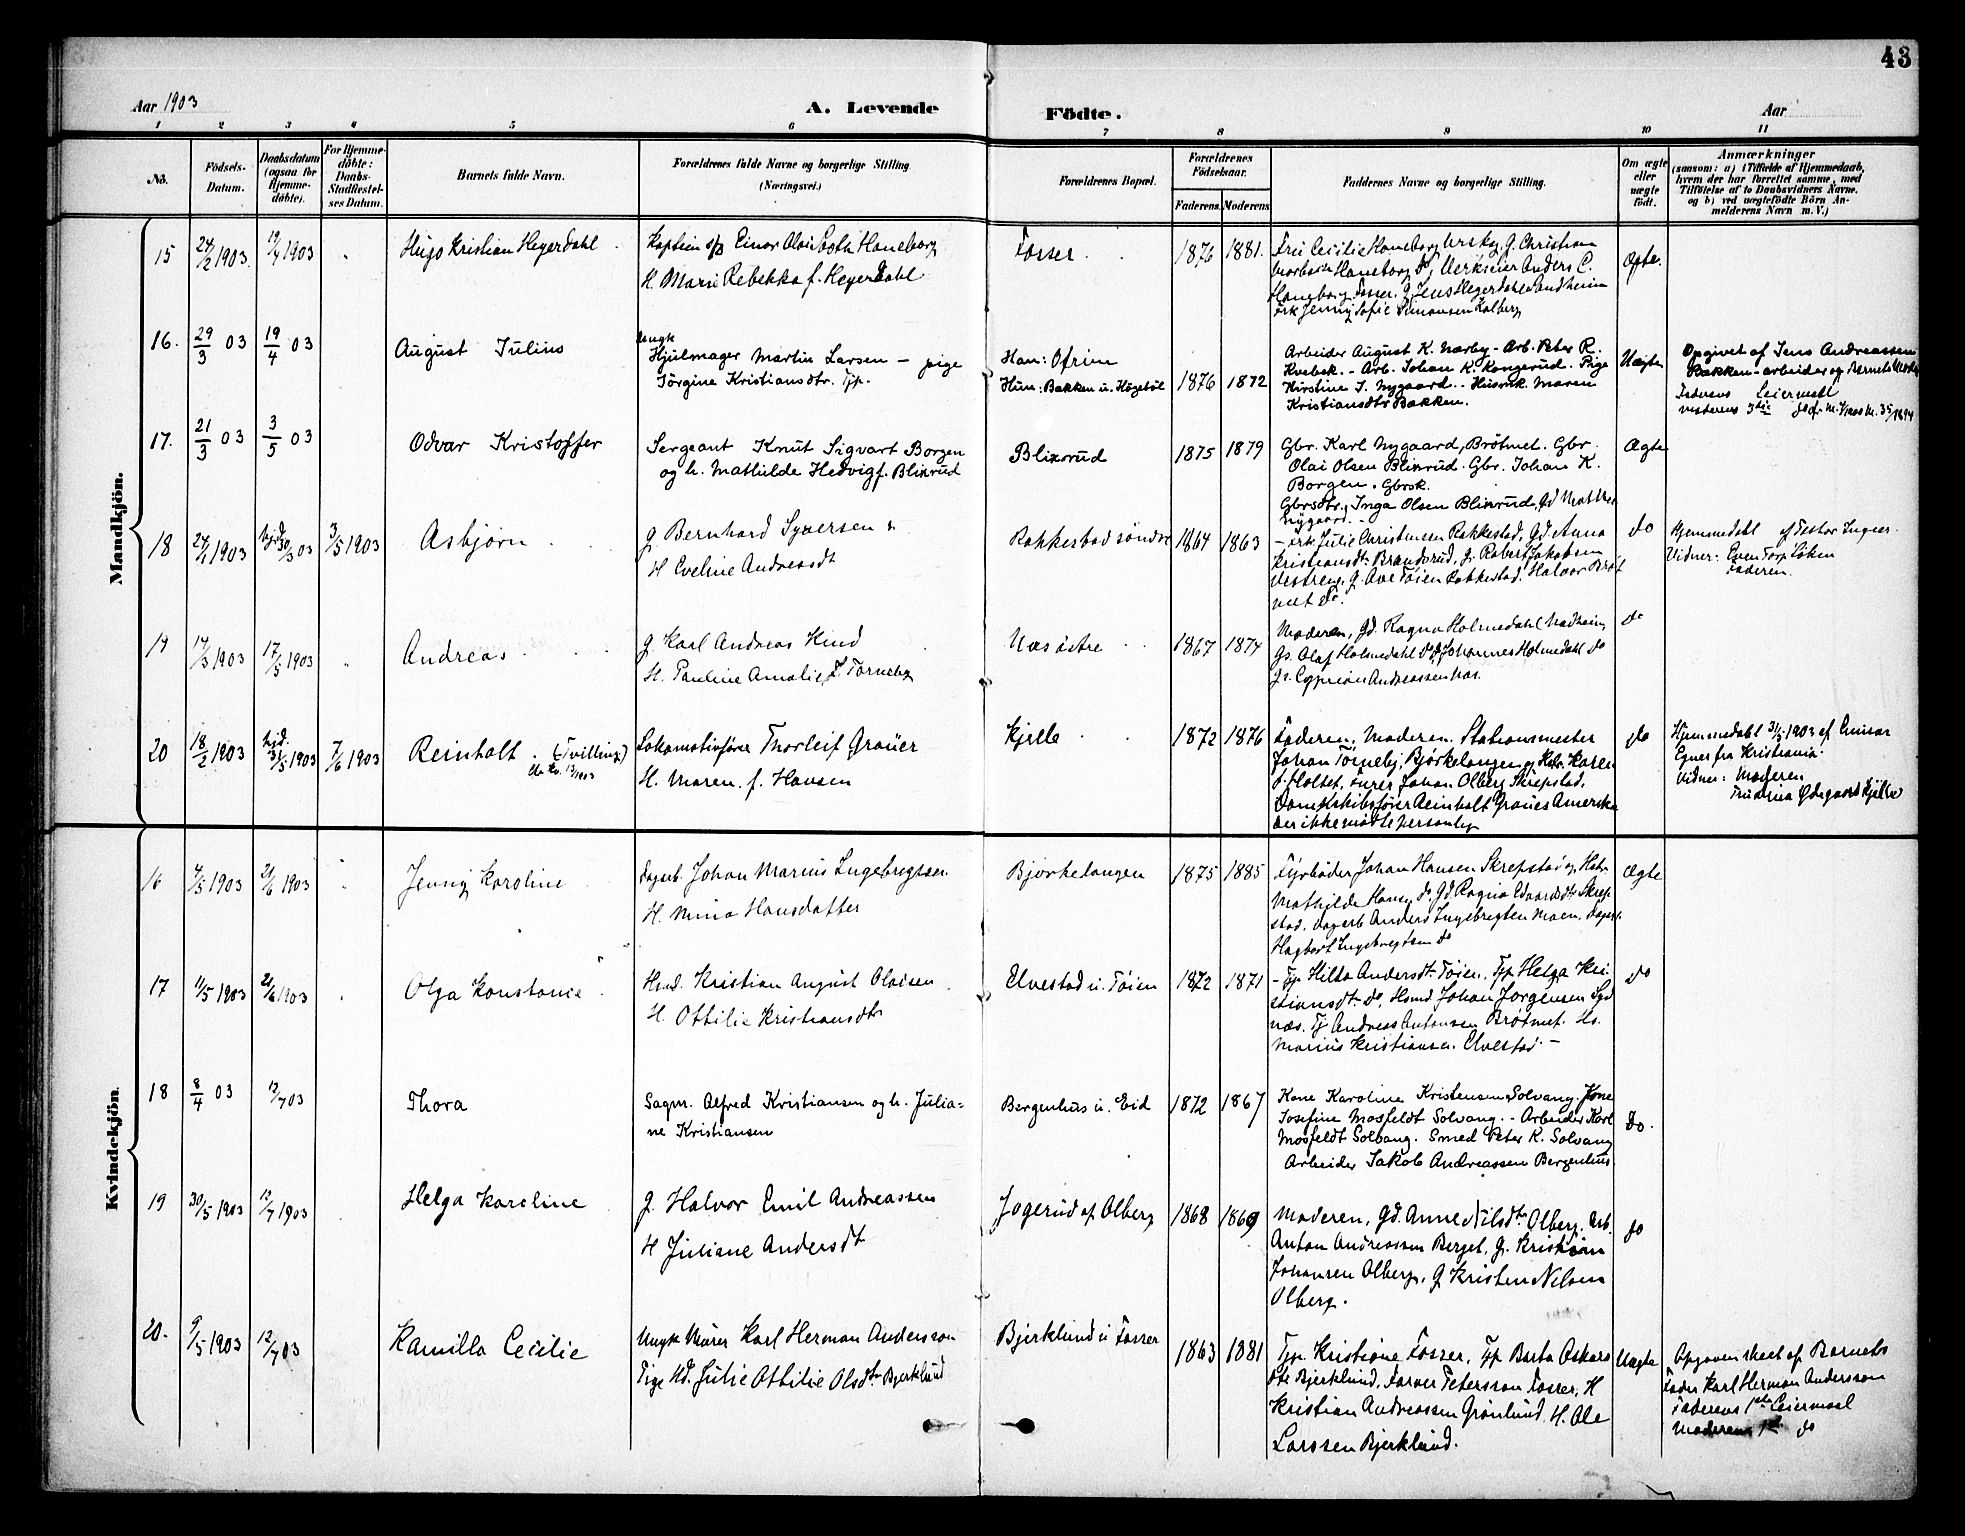 43
Aar 1903
A. Levende
Födte.
Aar
1 2 3 4 5 6 7 8 9 10 11
No.
Födsels-
Datum.
Daabsdatum
(ogsaa for
Hjemme-
döbte).
For Hjemme-
döbte:
Daabs-
Stadfæstel-
ses Datum.
Barnets fulde Navn.
Forældrenes fulde Navne og borgerlige Stilling.
(Næringsvei.)
Forældrenes Bopæl.
Forældrenes
Födselsaar.
Faderens. Moderens.
Faddernes Navne og borgerlige Stilling.
Om ægte
eller
uægte
födt.
Anmærkninger
(saasom: a) i Tilfælde af Hjemmedaab,
hvem der har forrettet samme, med
Tilföielse af to Daabsvidners Navne.
og b) ved uægtefödte Börn An-
melderens Navn m. V.)
Mandkjön.
15 24/2 1903 19/4 1903 " Hugo Kristian Heyerdahl
Kaptein Einar Olai Haneborg
H. Marie Rebekka f. Heyerdahl
Fosser 1876 1881.
Haneborg Urskog, G. Christian
Haneborg do, Verkseier Anders C.
Haneborg Fosser. G. Jens Heyerdahl
frk Jenny Sofie Simonsen Kolberg
Ægte.
16. 29/3 03 19/4 03 August Julius
Ungk
Hjulmager Martin Larsen — pige
Jörgine Kristiansdtr. Tjp.
Han:
Hun: Bakken u. Högebøl
1876 1872
Arbeider August K. Nærby - Arb. Peter R.
Kvebek. - Arb. Johan K. Kongerud. Pige
Kirstine J. Nygaard. - Husmk. Maren
Kristiansdtr Bakken.
Uægte
Opgivet af Jens Andreassen
Bakken - arbeider og Barnets
Faderens Leiermaal
moderens 3die
17. 21/3 03 3/5 03 Odvar Kristoffer
Sergeant Knut Sigvart Borgen
og h. Mathilde Hedvig f. Blixrud
Blixrud 1875 1879
Gbr. Karl Nygaard, Brötmet. Gbr.
Olai Olsen Blixrud. Gbr. Johan K.
Borgen. Gbrsk.
Gbrsdtr. Inga Olsen Blixrud,
Nygaard. -
Ægte
18 24/4 1903 hjd. 30/3 03 3/5 1903 Asbjørn
g Bernhard Syversen
H Eveline Andreasdt
Rakkestad søndre 1864 1863
- frk Julie Christensen Rakkestad, Gd. Anna
Kristiansdt. Brandsrud, G. Robert Jakobsen
Vestreng, G. Ave Tøien Rakkestad, Halvor Brøt
met do.
do
Hjemmedøbt af Pastor Ingier
Vidner: Even Torp Løken
Faderen.
19 14/3 1903 17/5 1903 " Andreas
g Karl Andreas Hind
H. Pauline Amalie f. Torneby
Næs østre 1867 1874
Moderen, Gd. Ragna Holmedahl
Gs. Olaf Holmedahl do, Johannes Holmedahl do
G. Cyprian Andreassen
do
20 18/2 1903 hjd. 31/5 1903 7/6 1903 Reinholt. (Tvilling)
Lokomotivfører Thorleif Graüer
H. Maren. f. Hansen
Kjelle 1872 1876
Faderen. Moderen. Stationsmester
Johan Törneby, Bjørkelangen og Karen
Holtet, Furer Johan Olberg Skrepstad,
Dampskibsfører Reinholt Graües Amerika
der ikke mødte personlig
do
Hjemmedøbt 31/5 1903 af Einar
Egner fra Kristiania.
Vidner: Moderen
Ødegaard Kjelle
Kvindekjön.
16 7/5 1903 21/6 1903 " Jenny Karoline
Dagarb. Johan Marius Ingebregtsen
H Mina Hansdatter
Bjørkelangen 1875 1885
Fyrbøder Johan Hansen Skrepstad og
Mathilde Hansen do, Gd. Ragna Edvardsdtr Skrep-
stad. Dagarb Anders Ingebregtsen Moen, Dagarb.
Hagbart Ingebregtsen do
Ægte
17 11/5 1903 21/6 1903 " Olga Konstance
Hmd. Kristian August Olaisen
H. Ottilie Kristiansdtr
Elvestad u. Tøien 1872 1871
- Tjp Hilda Andersdt. Tøien, Tjp Helga Kri-
stiansdt. do, Hsmd Johan Jørgensen Syd
næs. Tj Andreas Antonsen Brøtmet. Hs.
Marius Kristiansen Elvestad. —
do
18 8/4 03 12/7 03 Thora
Sagm. Alfred Kristiansen og h. Julia=
ne Kristiansen
Bergenhus u. Eid 1872 1867
Kone Karoline Kristensen Solvang, Kone
Josefine Mosfeldt Solvang. - Arbeider Karl
Mosfeldt Solvang. Smed Peter K. Solvang
Arbeider Jakob Andreassen Bergenhus
Do.
19 30/5 1903 12/7 1903 Helga Karoline
g. Halvor Emil Andreassen
H Juliane Andersdt
Jogerud af Olberg 1868 1869
Moderen, Gd. Anne Nilsdtr Olberg, Arb.
Anton Andreassen Berget, G. Kristian
Johansen Olberg, G Kristen Nilsen
Olberg.
do
20. 9/5 1903 12/7 03 Kamilla Cecilie
Ungk Murer Karl Herman Andersson
Pige Julie Ottilie Olsdtr Bjerklund
Bjerklund u Fosser 1863 1881
Tjp. Kristiane Fosser, Tjp Barta Oskars
dtr Bjerklund, Farver Petersson Fosser, H
Kristian Andreassen Grønlund, H. Ole
Larssen Bjerklund.
Uægte
Opgaven skeet af Barnets
Fader Karl Herman Andersson
Faderens 1ste Leiermaal
Moderens 1ste do